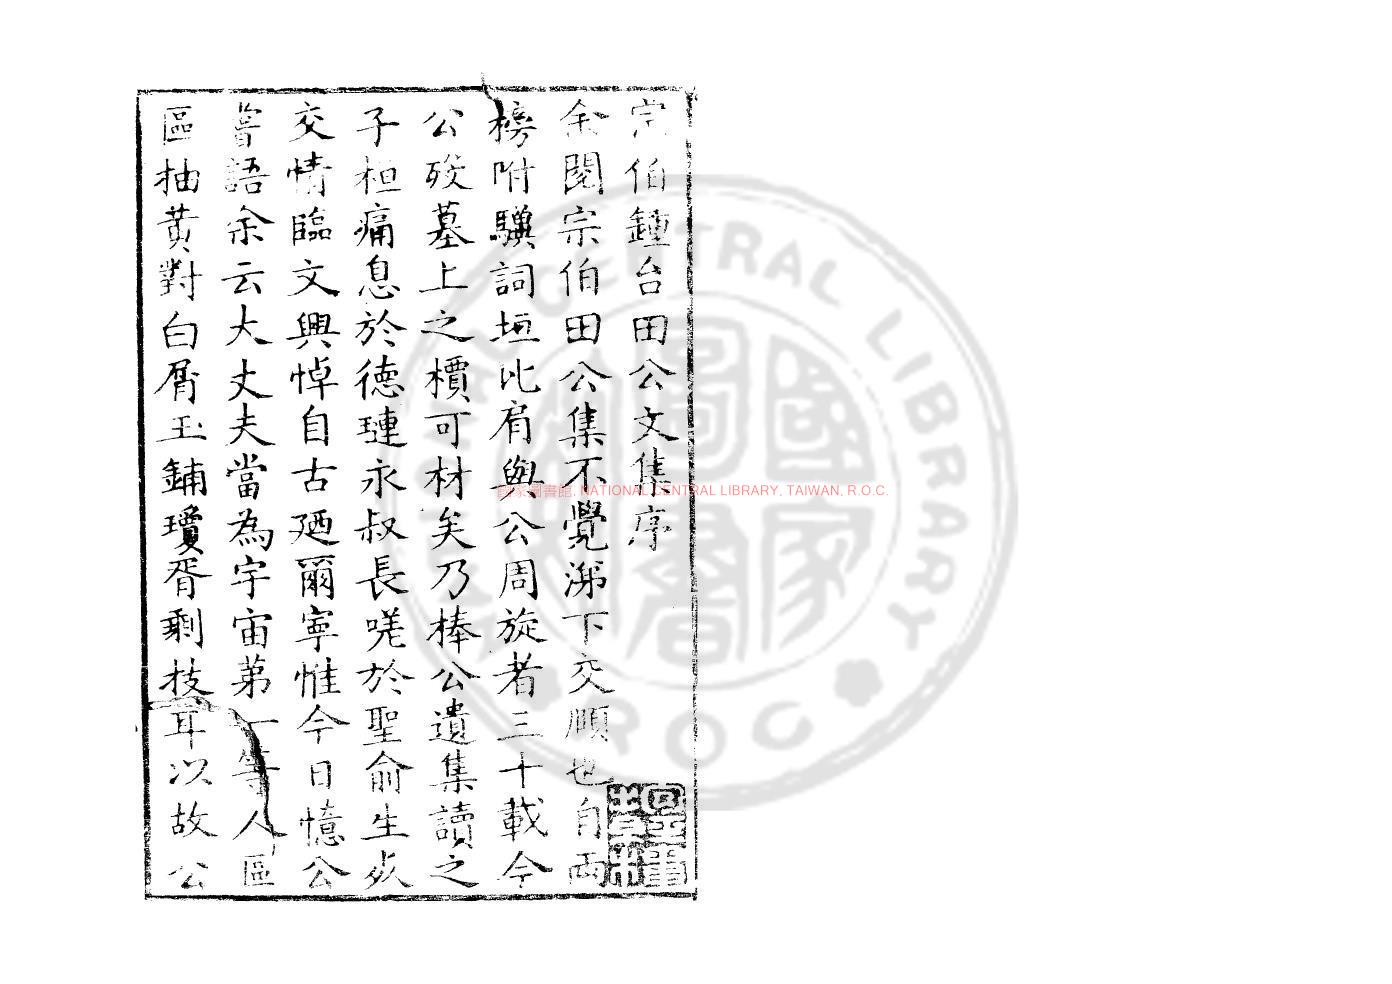 宗伯鍾台田公文集序
余閱宗伯田公集不覺涕下交頤也自兩
榜附驥詞垣比肩與公周旋者三十載今
公歿墓上之檟可材矣乃捧公遺集讀之
子桓痛息於德璉永叔長嗟於聖俞生死
交情臨文興悼自古廼爾寧惟今日憶公
嘗語余云大丈夫當為宇宙第一等人區
區抽黃對白屑玉鋪瓊胥剩技耳以故公
國家圖書館, NATIONAL CENTRAL LIBRARY, TAIWAN, R.O.C.
NATIONAL CENTRAL LIBRARY
ROC
國家圖書